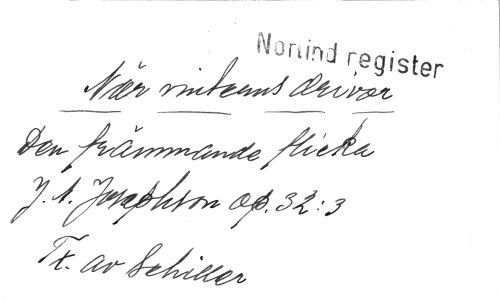 Norlind register
När vinterns drivor
Den främmande flicka
J. A. Josephson Op. 32:3
Tx. av Schiller